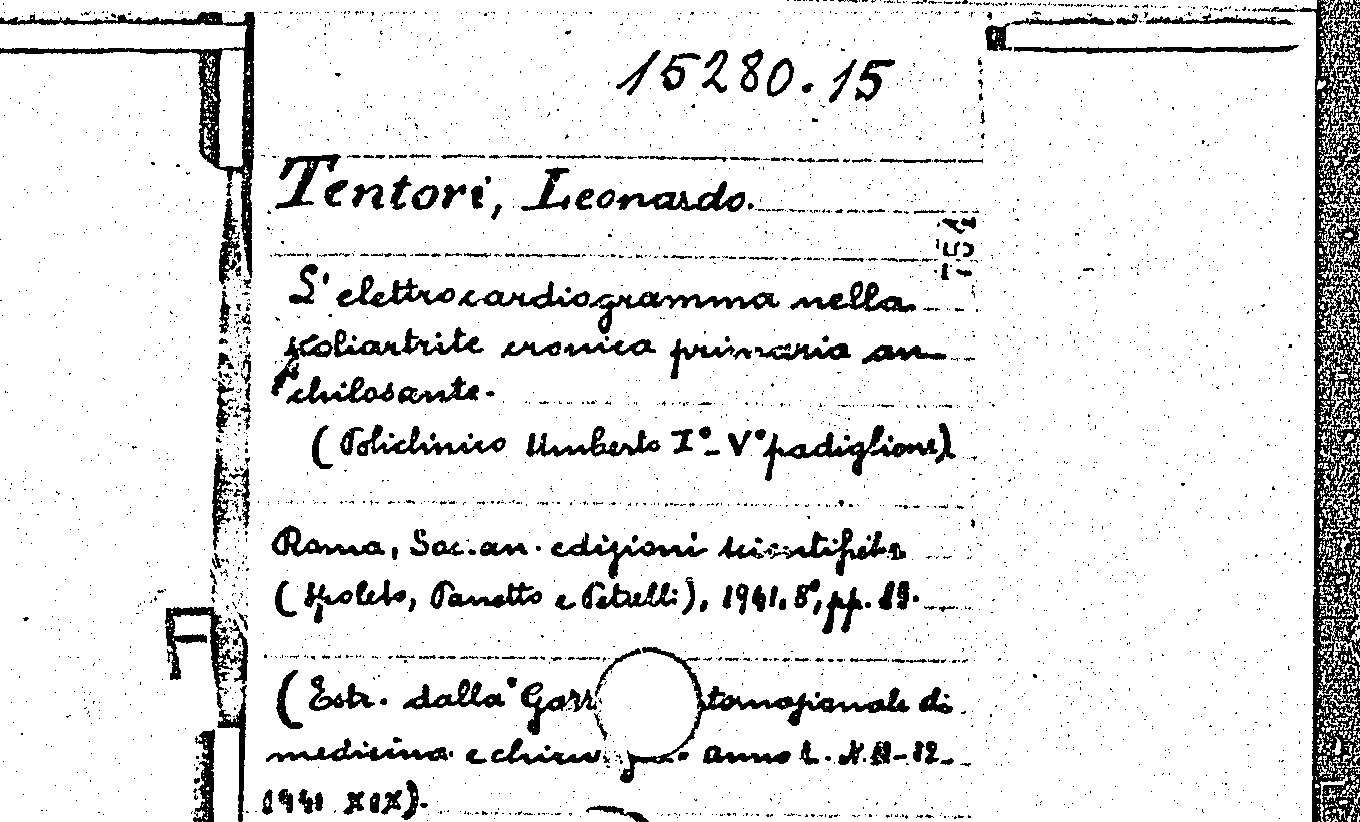 15280.15
Tentori, Leonardo.
754
L'elettrocardiogramma nella
scoliartrite cronica primaria an-
chilosante.
(Policlinico Umberto I° - V° padiglione)
Roma, Soc. an. edizioni scientifiche
(Spoleto, Panetto e Petrelli), 1941, 8°, pp. 19.
(Estr. dalla "Gazz ternazionale di
medicina e chirur anno L. N. 11-12-
1941 XIX).